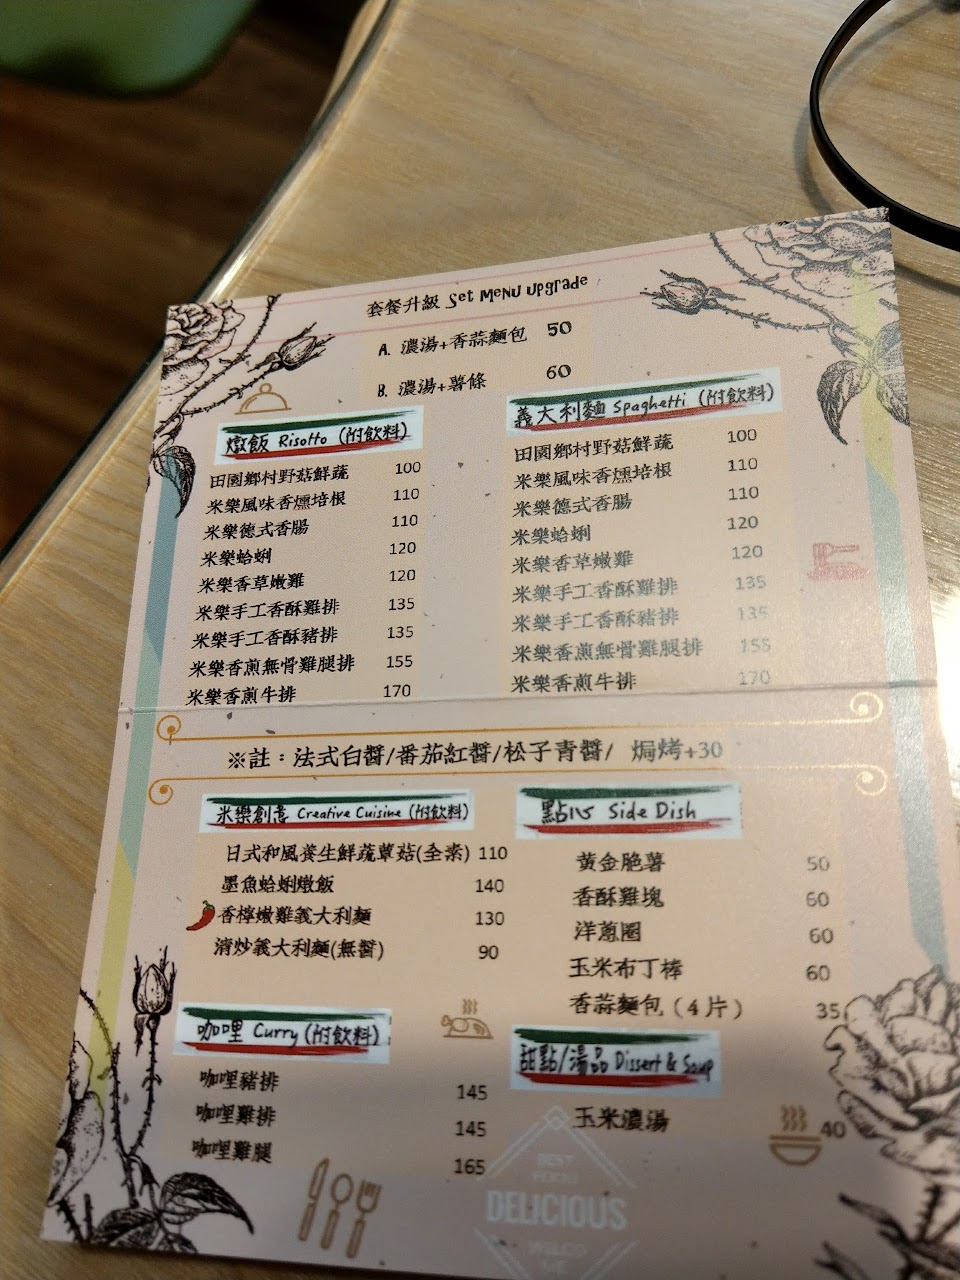 套餐升級 Set Menu upgrade
A. 濃湯+香蒜麵包 50
B. 濃湯+薯條 60
燉飯 Risotto (附飲料)
田園鄉村野菇鮮蔬 100
米樂風味香燻培根 110
米樂德式香腸 110
米樂蛤蜊 120
米樂香草嫩雞 120
米樂手工香酥雞排 135
米樂手工香酥豬排 135
米樂香煎無骨雞腿排 155
米樂香煎牛排 170
義大利麵 Spaghetti (附飲料)
田園鄉村野菇鮮蔬 100
米樂風味香燻培根 110
米樂德式香腸 110
米樂蛤蜊 120
米樂香草嫩雞 120
米樂手工香酥雞排 135
米樂手工香酥豬排 135
米樂香煎無骨雞腿排 155
米樂香煎牛排 170
※註：法式白醬/番茄紅醬/松子青醬/ 焗烤+30
米樂創意 Creative Cuisine (附飲料)
日式和風養生鮮蔬蕈菇(全素) 110
墨魚蛤蜊燉飯 140
香檸嫩雞義大利麵 130
清炒義大利麵(無醬) 90
點心 Side Dish
黃金脆薯 50
香酥雞塊 60
洋蔥圈 60
玉米布丁棒 60
香蒜麵包（4片） 35
咖哩 Curry (附飲料)
咖哩豬排 145
咖哩雞排 145
咖哩雞腿 165
甜點/湯品 Dissert & Soup
玉米濃湯 40
BEST
FOOD
DELICIOUS